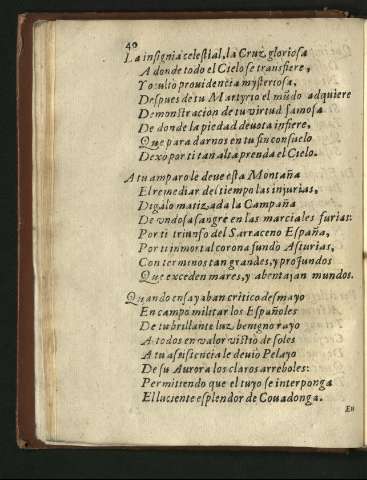 40
La insignia celestial, la Cruz gloriosa
A donde todo el Cielo se transfiere,
Y oculto prouidencia mysteriosa,
Despues de tu Martyrio el mũdo adquiere
Demonstracion de tu virtud famosa
De donde la piedad deuota infiere,
Que para darnos en tu fin consuelo
Dexo por ti tan alta prenda el Cielo.
A tu amparo le deue esta Montaña
El remediar del tiempo las injurias,
Digalo matizada la Campaña
De vndosa sangre en las marciales furias:
Por ti triunfo del Sarraceno España,
Por ti inmortal corona fundò Asturias,
Con terminos tan grandes, y profundos
Que exceden mares, y abentajan mundos.
Quando ensayaban critico desmayo
En campo militar los Españoles
De tu brillante luz benigno rayo
A todos en valor vistiò de soles
A tu assistencia le deuio Pelayo
De su Aurora los claros arreboles:
Permitiendo que el tuyo se interponga
El luciente esplendor de Couadonga.
En